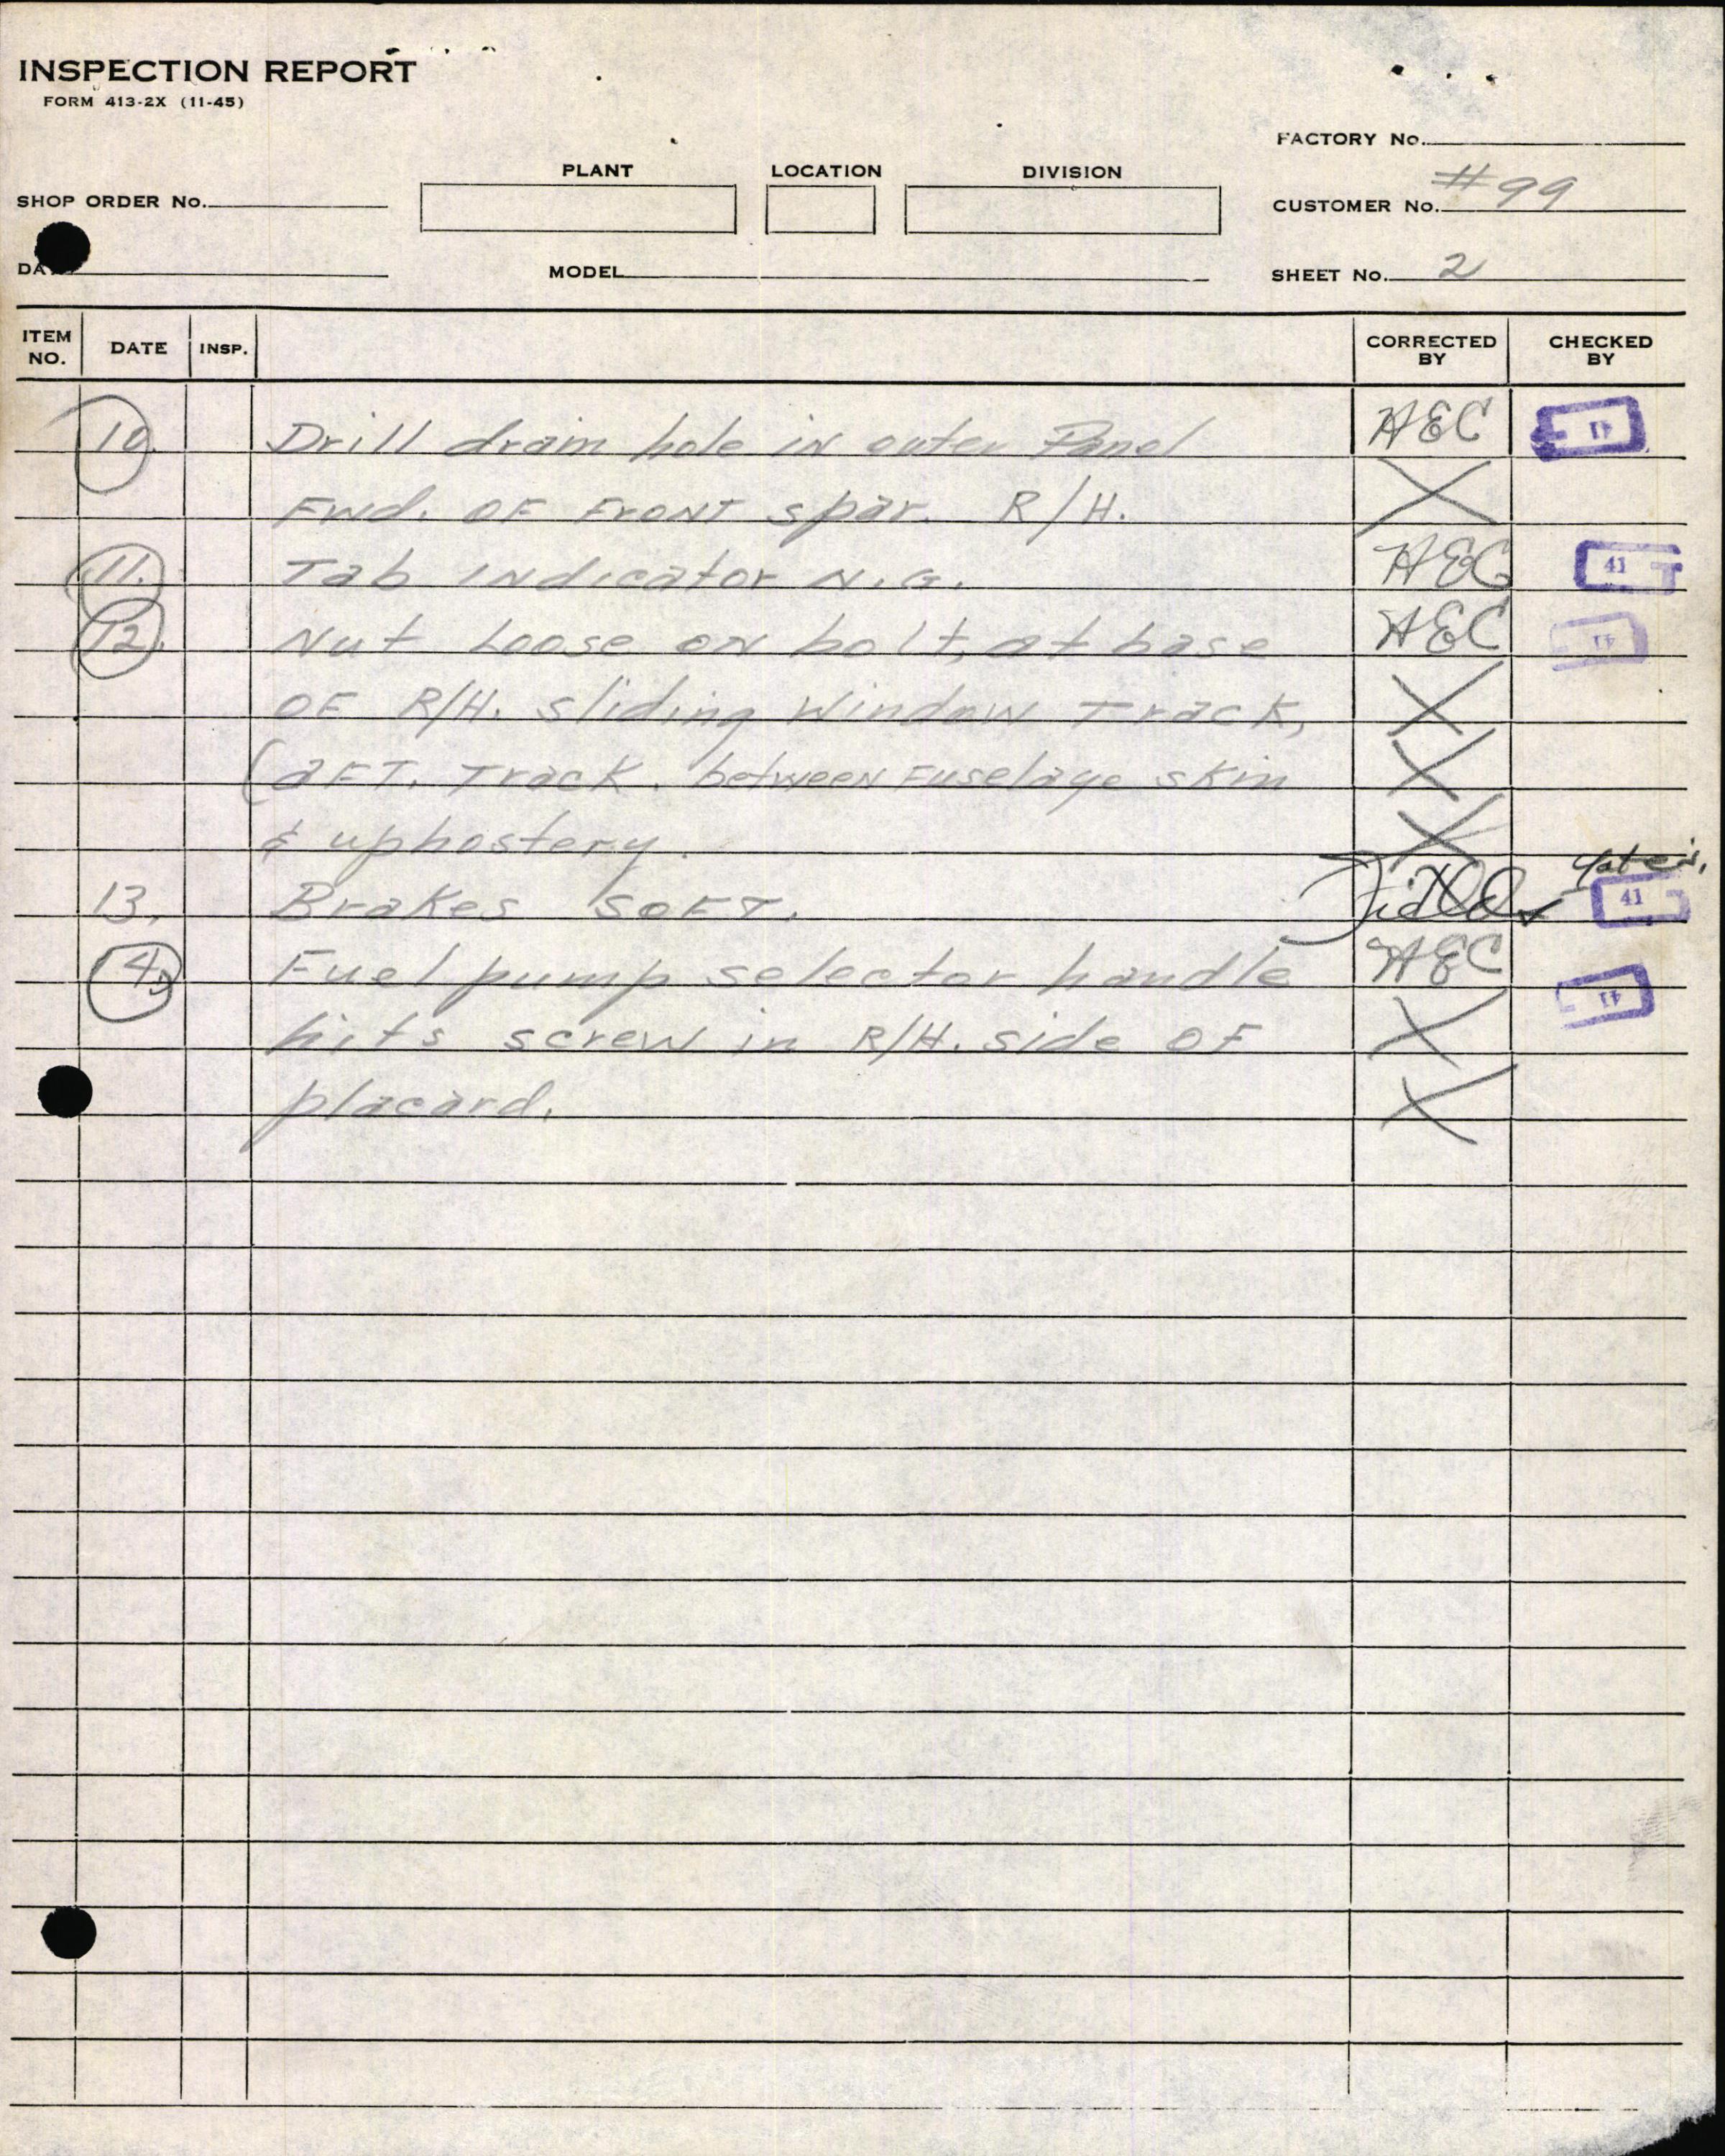 INSPECTION REPORT
FORM 413-2X (11-45)
FACTORY No.
PLANT LOCATION DIVISION
SHOP ORDER No. CUSTOMER No. #99
DA MODEL SHEET No. 2
ITEM NO. DATE INSP. CORRECTED BY CHECKED BY
10. Drill drain hole in outer Panel HEC 41
Fwd. OF FRONT spar. R/H. X
11. Tab INdicator N.G. HEC 41
12. Nut Loose ON bolt, at base HEC 41
OF R/H. sliding Window Track, X
(aFT. Track. between Fuselage skin X
& uphostery. X
13. Brakes SOFT. 41
4. Fuel pump selector handle HEC 41
hits screw in R/H. side OF X
placard. X